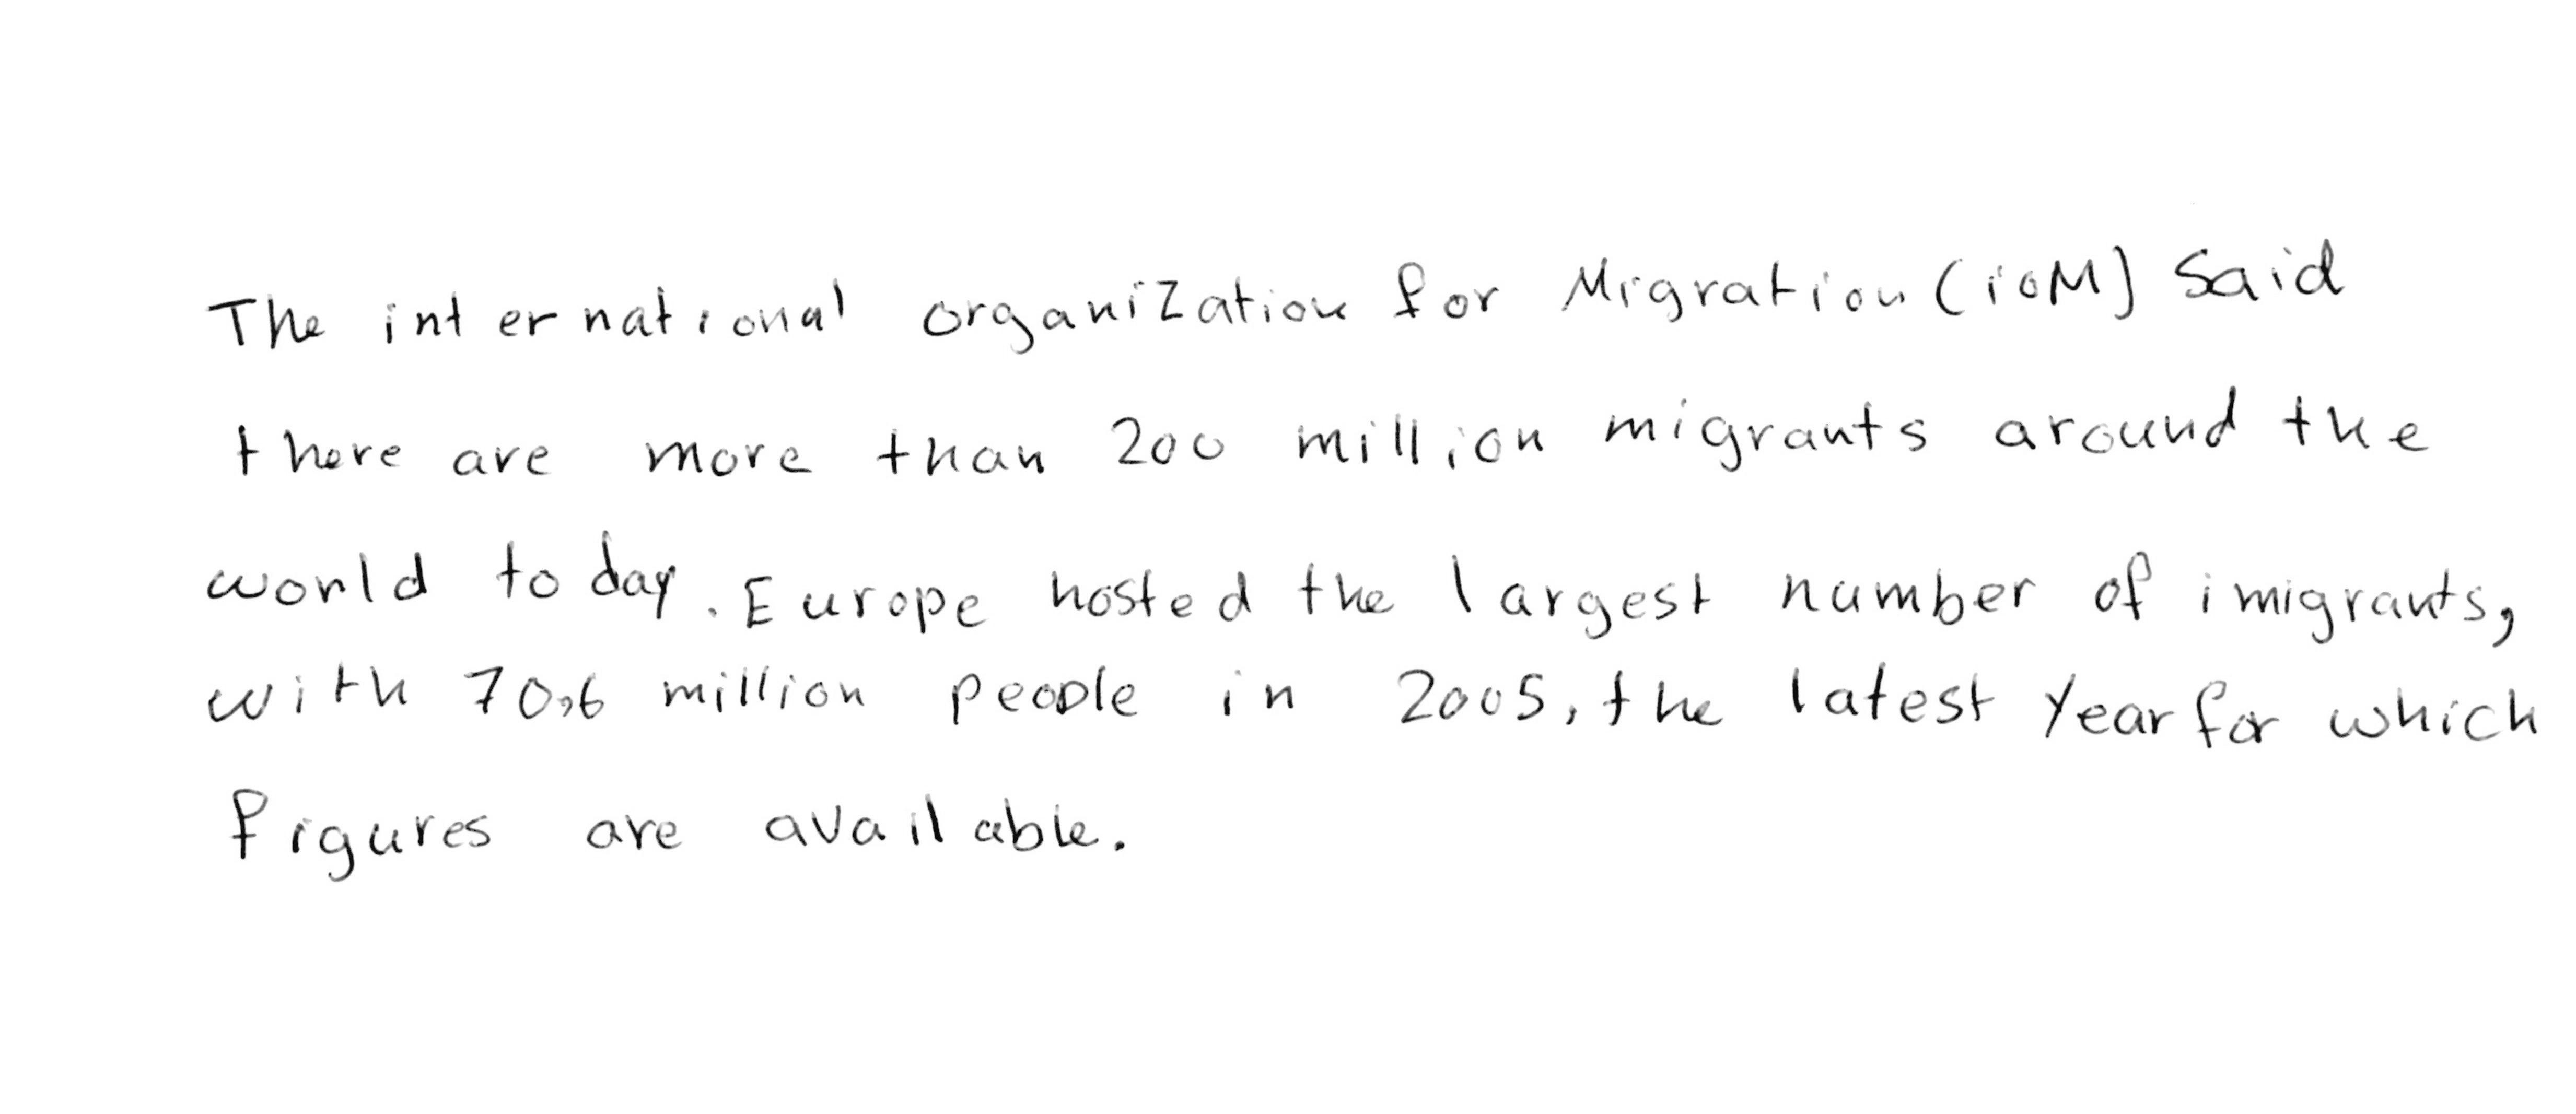 The international organization for Migration (ioM) Said
there are more than 200 million migrants around the
world today. Europe hosted the largest number of imigrants,
with 70,6 million people in 2005, the latest year for which
figures are available.